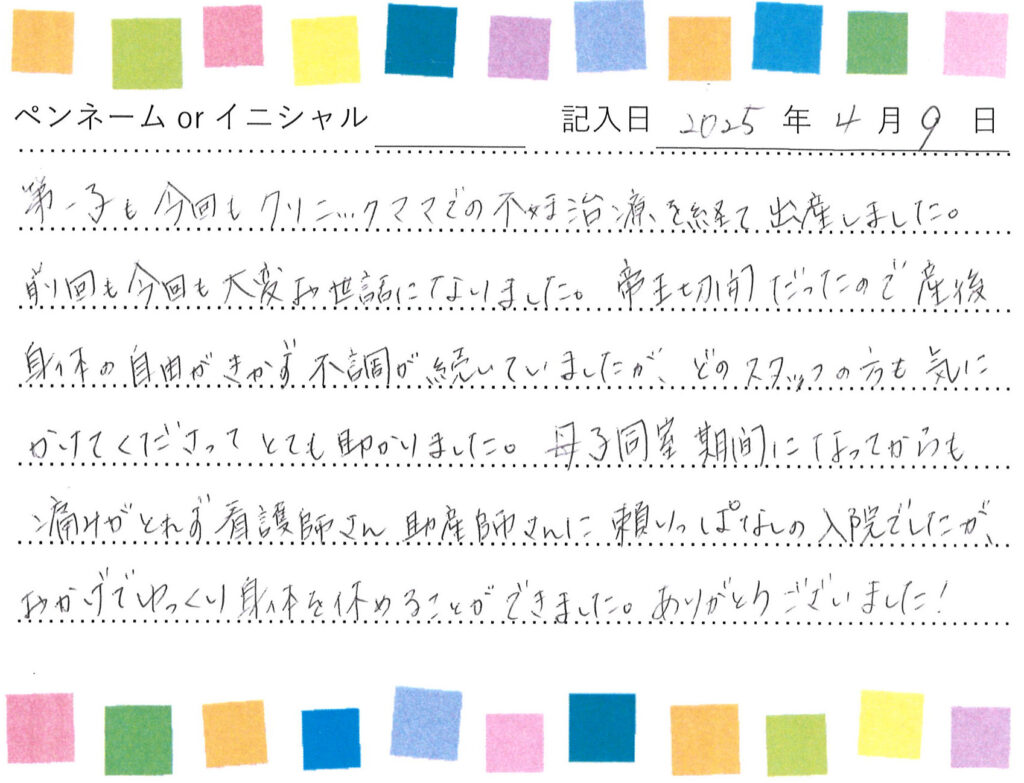 ペンネーム or イニシャル 記入日 2025 年 4 月 9 日
第一子も今回もクリニックママでの不妊治療を経て出産しました。
前回も今回も大変お世話になりました。帝王切開だったので産後
身体の自由がきかず不調が続いていましたが、どのスタッフの方も気に
かけてくださってとても助かりました。母子同室期間になってからも
痛みがとれず看護師さん助産師さんに頼りっぱなしの入院でしたが、
おかげでゆっくり身体を休めることができました。ありがとうございました!